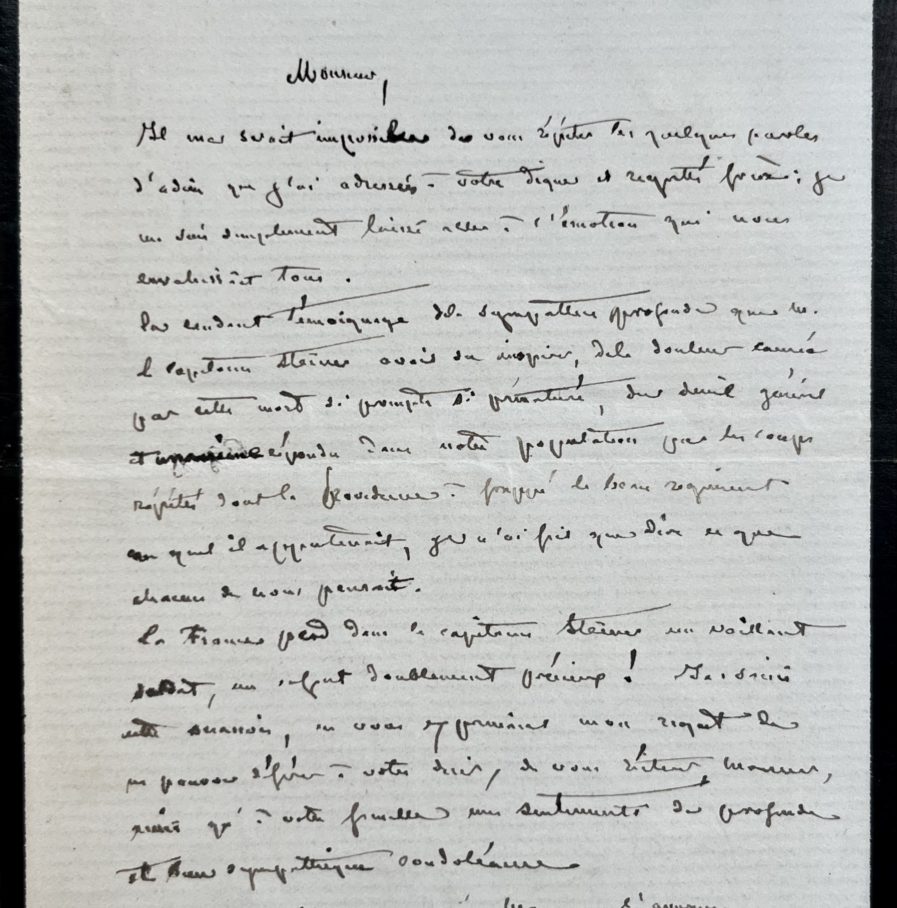 Monsieur,
Il me serait impossible de vous répéter les quelques paroles
d'adieu que j'ai adressées à votre digne et regretté frère; je
me suis simplement laissé aller à l'émotion qui nous
envahissait tous.
témoignage de la sympathie profonde que M.
le capitaine Steiner avait su inspirer, de la douleur causée
par cette mort si prompte si prématurée, du deuil général
et répandu dans notre population par les coups
répétés dont la Providence a frappé le beau régiment
auquel il appartenait, je n'ai fait que dire ce que
chacun de nous pensait.
La France perd dans le capitaine Steiner un vaillant
soldat, un enfant doublement précieux ! Je saisis
cette occasion, en vous exprimant mon regret de
ne pouvoir déférer à votre désir, de vous réitérer, Monsieur,
ainsi qu'à votre famille mes sentiments de profonde
et bien sympathique condoléance